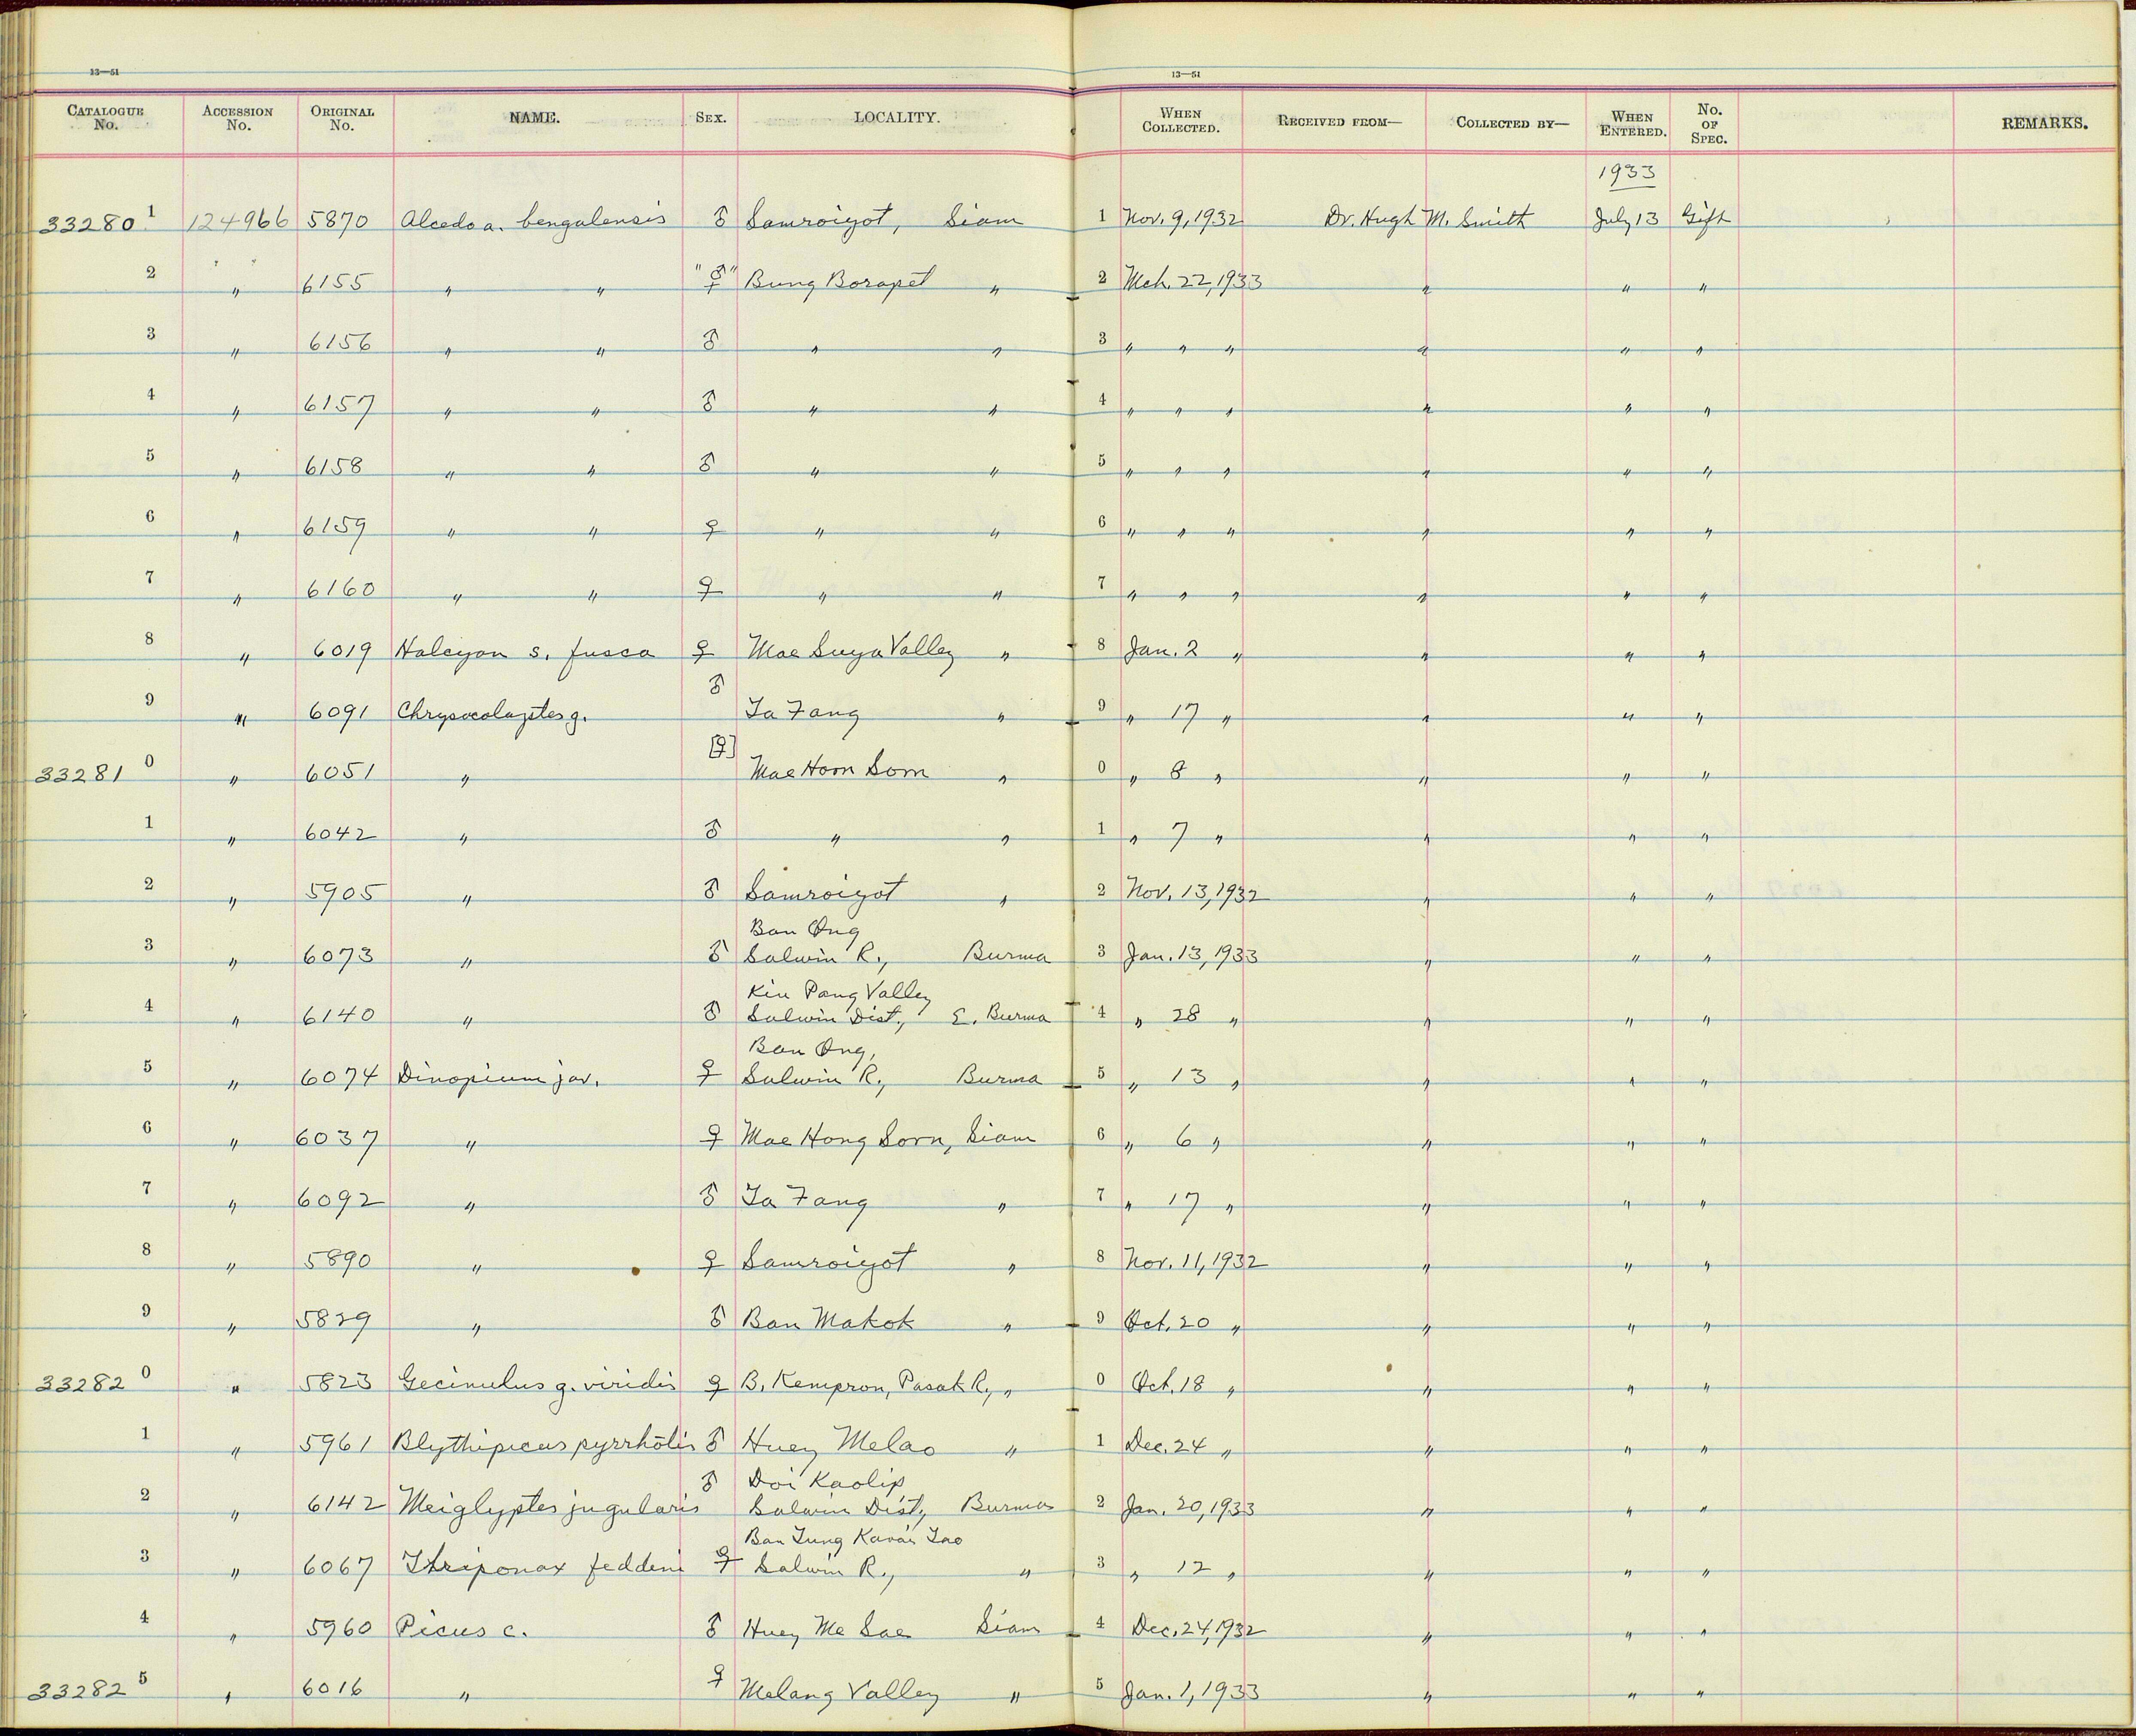 13—51 13—51
CATALOGUE No. ACCESSION No. ORIGINAL No. NAME. SEX. LOCALITY. WHEN COLLECTED. RECEIVED FROM— COLLECTED BY— WHEN ENTERED. No. OF SPEC. REMARKS.
1933
33280 1 124966 5870 Alcedo a. bengalensis ♂ Samroiyot, Siam 1 Nov. 9, 1932 Dr. Hugh M. Smith July 13 Gift
2 " 6155 " " "♀" Bung Borapet " 2 Mch. 22, 1933 " " "
3 " 6156 " " ♂ " " 3 " " " " " "
4 " 6157 " " ♂ " " 4 " " " " " "
5 " 6158 " " ♂ " " 5 " " " " " "
6 " 6159 " " ♀ " " 6 " " " " " "
7 " 6160 " " ♀ " " 7 " " " " " "
8 " 6019 Halcyon s. fusca ♀ Mae Suya Valley " 8 Jan. 2 " " " "
9 " 6091 Chrysocolaptes g. ♂ Ta Fang " 9 " 17 " " " "
33281 0 " 6051 " [♀] Mae Horn Sorn " 0 " 8 " " " "
1 " 6042 " ♂ " " 1 " 7 " " " "
2 " 5905 " ♂ Samroiyot " 2 Nov. 13, 1932 " " "
3 " 6073 " ♂ Ban Ong Salwin R., Burma 3 Jan. 13, 1933 " " "
4 " 6140 " ♂ Kin Pang Valley Salwin Dist., E. Burma 4 " 28 " " " "
5 " 6074 Dinopium jav. ♀ Ban Ong, Salwin R., Burma 5 " 13 " " " "
6 " 6037 " ♀ Mae Hong Sorn, Siam 6 " 6 " " " "
7 " 6092 " ♂ Ta Fang " 7 " 17 " " " "
8 " 5890 " ♀ Samroiyot " 8 Nov. 11, 1932 " " "
9 " 5829 " ♂ Ban Makok " 9 Oct. 20 " " " "
33282 0 " 5823 Gecinulus g. viridis ♀ B. Kempron, Pasak R., " 0 Oct. 18 " " " "
1 " 5961 Blythipicus pyrrhotis ♂ Huey Melao " 1 Dec. 24 " " " "
2 " 6142 Meiglyptes jugularis ♂ Doi Kaolip, Salwin Dist., Burma 2 Jan. 20, 1933 " " "
3 " 6067 Thriponax feddeni ♀ Ban Tung Salwin R., " 3 " 12 " " " "
4 " 5960 Picus c. ♂ Huey Me Sae Siam 4 Dec. 24, 1932 " " "
33282 5 " 6016 " ♀ Melang Valley " 5 Jan. 1, 1933 " " "